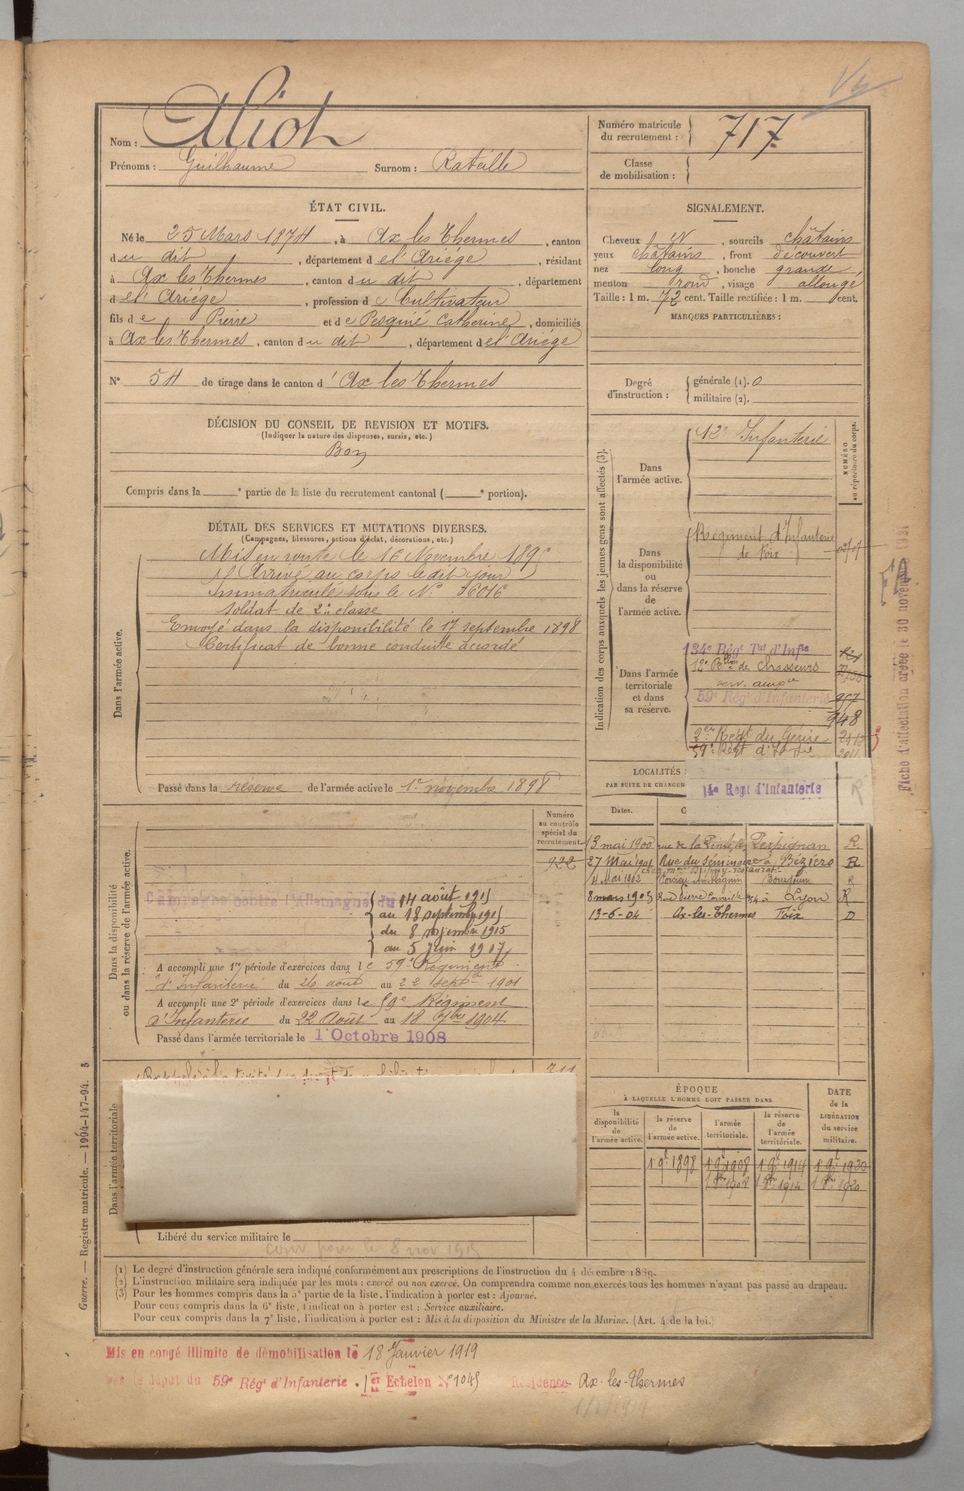 Nom : Aliot
Prénoms : Guilhaume Surnom : Rateille
ÉTAT CIVIL.
Né le 25 Mars 1874, à Ax les Thermes, canton
du dit, département de l'Ariége, résidant
à Ax les Thermes, canton du dit, département
de l'Ariége, profession de Cultivateur
fils de Pierre et de Pesquié Catherine, domiciliés
à Ax les Thermes, canton du dit, département de l'Ariége
N° 54 de tirage dans le canton d'Ax les Thermes
DÉCISION DU CONSEIL DE REVISION ET MOTIFS.
(Indiquer la nature des dispenses, sursis, etc.)
Bon
Compris dans la ____e partie de la liste du recrutement cantonal (____e portion).
DÉTAIL DES SERVICES ET MUTATIONS DIVERSES.
(Campagnes, blessures, actions d'éclat, décorations, etc.)
Dans l'armée active.
Mis en route le 16 Novembre 189
Arrivé au corps le dit jour
Immatriculé sous le N° 36016
Soldat de 2e classe
Envoyé dans la disponibilité le 17 septembre 1898
Certificat de bonne conduite accordé
Passé dans la réserve de l'armée active le 1er novembre 1898
Dans la disponibilité
ou dans la réserve de l'armée active.
Numéro
au contrôle
spécial du
recrutement
922
Campagne contre l'Allemagne du 14 août 1915
au 18 septembre 1915
du 8 novembre 1915
au 5 Juin 1917
A accompli une 1re période d'exercices dans le 59e Régiment
d'Infanterie du 26 août au 22 septbre 1901
A accompli une 2e période d'exercices dans le 59e Régiment
d'Infanterie du 22 Août au 18 7bre 1904
Passé dans l'armée territoriale le 1 Octobre 1908
Dans l'armée territoriale
Libéré du service militaire le
Numéro matricule
du recrutement : 717
Classe
de mobilisation :
SIGNALEMENT.
Cheveux , sourcils châtains
yeux châtains, front découvert
nez long, bouche grande,
menton rond, visage allongé
Taille : 1 m. 72 cent. Taille rectifiée : 1 m. cent.
MARQUES PARTICULIÈRES :
Degré
d'instruction :
générale (1). 0
militaire (2).
Indication des corps auxquels les jeunes gens sont affectés (3).
NUMÉRO
au répertoire du corps.
Dans
l'armée active.
12e Infanterie
Dans
la disponibilité
ou
dans la réserve
de
l'armée active.
Régiment d'Infanterie
de Foix
Dans l'armée
territoriale
et dans
sa réserve.
134e Régt Tal d'Infie
12e Bon de Chasseurs
59e Rég d'Infanterie 957
948
2me Régt du Génie
59e Régt d'Inf
14e Regt d'Infanterie
R
LOCALITÉS
PAR SUITE DE CHANGEM
Dates.
13 mai 1900 rue de la Perpignan R.
27 Mai 1901 Rue du Séminaire Béziers R
R
8 mars 1903 Rue Pierre Corneille 74 à Lyon R
13-6-04 Ax-les-Thermes Foix D
ÉPOQUE
À LAQUELLE L'HOMME DOIT PASSER DANS
DATE
de la
LIBÉRATION
du service
militaire.
la
disponibilité
de
l'armée active.
la réserve
de
l'armée active.
l'armée
territoriale.
la réserve
de
l'armée
territoriale.
1 9e 1898 1 9e 1908 1 9e 1914 1 9e 1920
1 8re 1908 1 8re 1914 1 8re 1920
(1) Le degré d'instruction générale sera indiqué conformément aux prescriptions de l'instruction du 4 décembre 1889.
(2) L'instruction militaire sera indiquée par les mots : exercé ou non exercé. On comprendra comme non exercés tous les hommes n'ayant pas passé au drapeau.
(3) Pour les hommes compris dans la 5e partie de la liste, l'indication à porter est : Ajourné.
Pour ceux compris dans la 6e liste, l'indication à porter est : Service auxiliaire.
Pour ceux compris dans la 7e liste, l'indication à porter est : Mis à la disposition du Ministre de la Marine. (Art. 4 de la loi.)
Mis en congé illimité de démobilisation le 18 Janvier 1919
dépôt du 59e Régt d'Infanterie. 1er Echelon N° 1045 Résidence Ax-les-Thermes
Guerre. — Registre matricule. — 1994-147-94. 3
Fiche d'affectation arrêtée le 30 novembre 1931